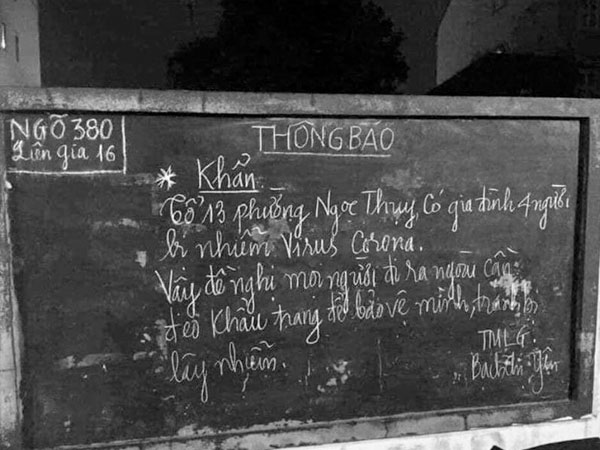 NGÕ 380
Liên gia 16
THÔNG BÁO
* Khẩn
Tổ 13 phường Ngọc Thụy, Có gia đình 4 người
bị nhiễm Virus Corona.
Vậy đề nghị mọi người đi ra ngoài cần
đeo khẩu trang để bảo vệ mình, tránh bị
lây nhiễm.
TMLG
Yên